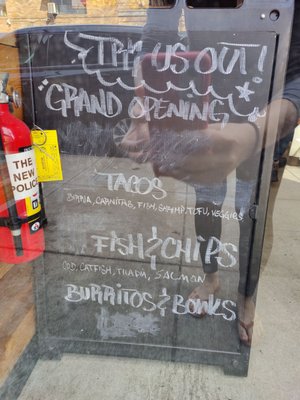 TRY US OUT!
GRAND OPENING
TACOS
BIRRIA, CARNITAS, FISH, SHRIMP, TOFU, VEGGIES
FISH & CHIPS
COD, CATFISH, TILAPIA, SALMON
BURRITOS & BOWLS
THE
NEW
POLICE